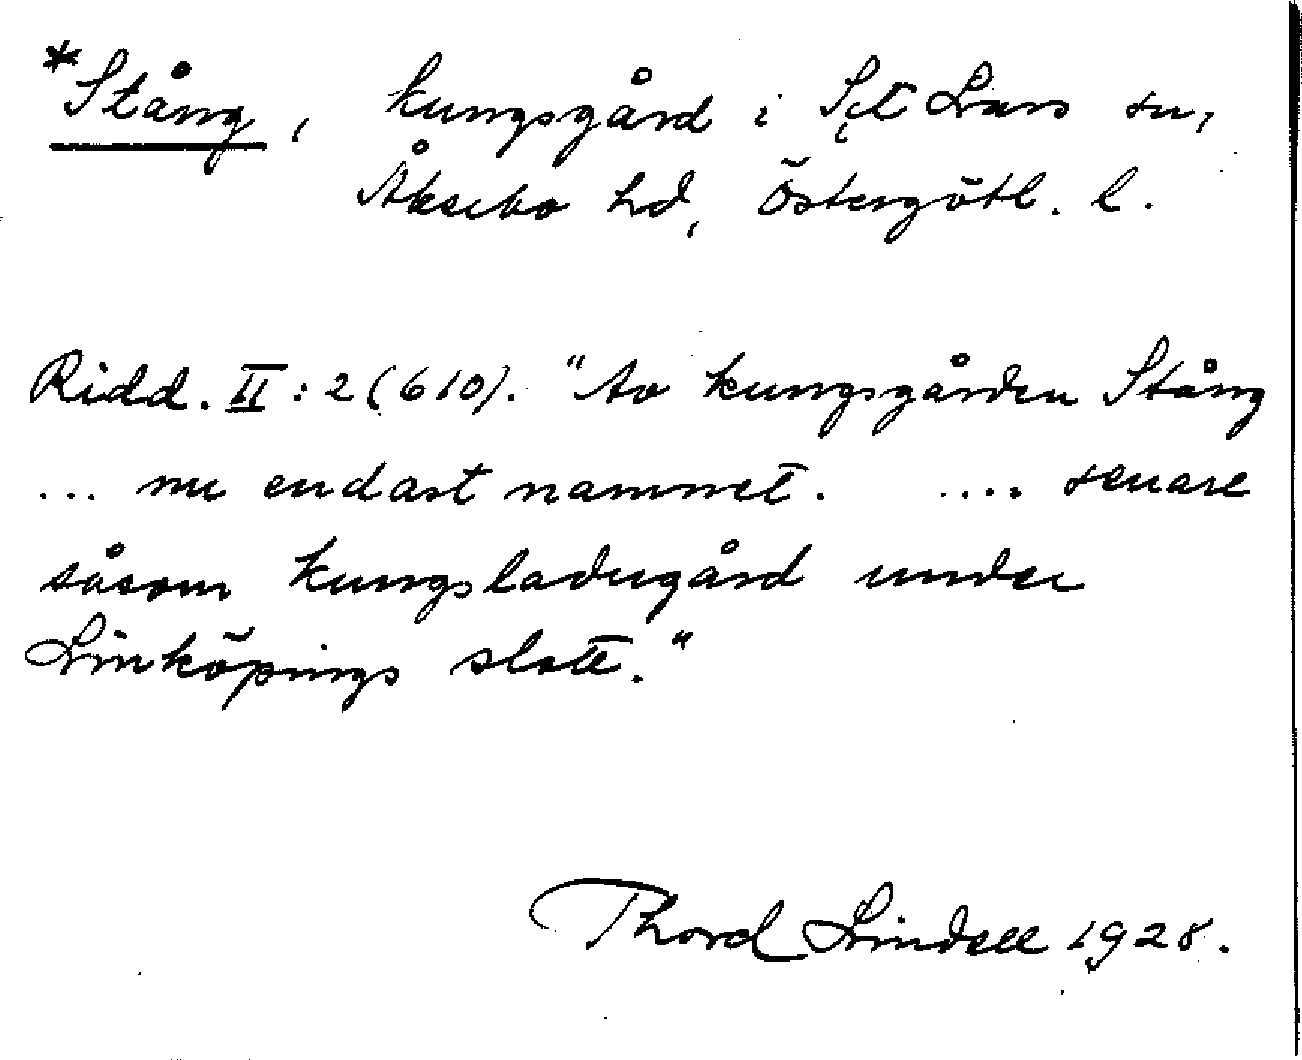 *Stång, kungsgård i S:t Lars sn,
Åkerbo hd, Östergötl. l.
Ridd. II:2 (610). "Av kungsgården Stång
... nu endast namnet. .... senare
såsom kungsladugård under
Linköpings slott."
Thord Lindell 1928.